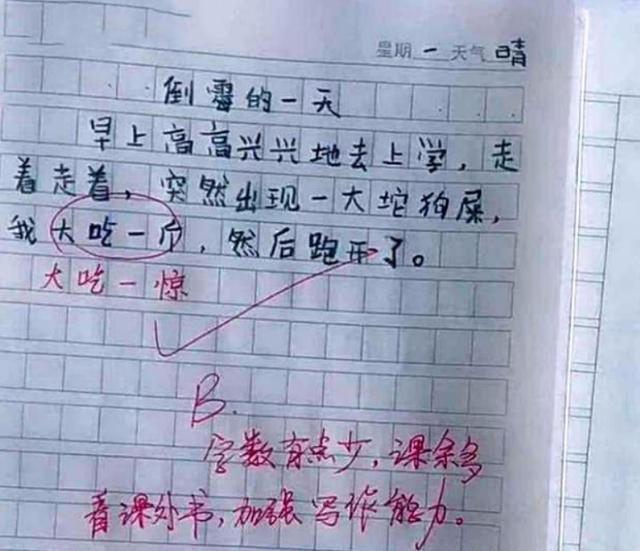 星期一 天气晴
倒霉的一天
早上高高兴兴地去上学，走
着走着，突然出现一大坨狗屎，
我大吃一斤，然后跑开了。
大吃一惊
B.
字数有点少，课余多
看课外书，加强写作能力。